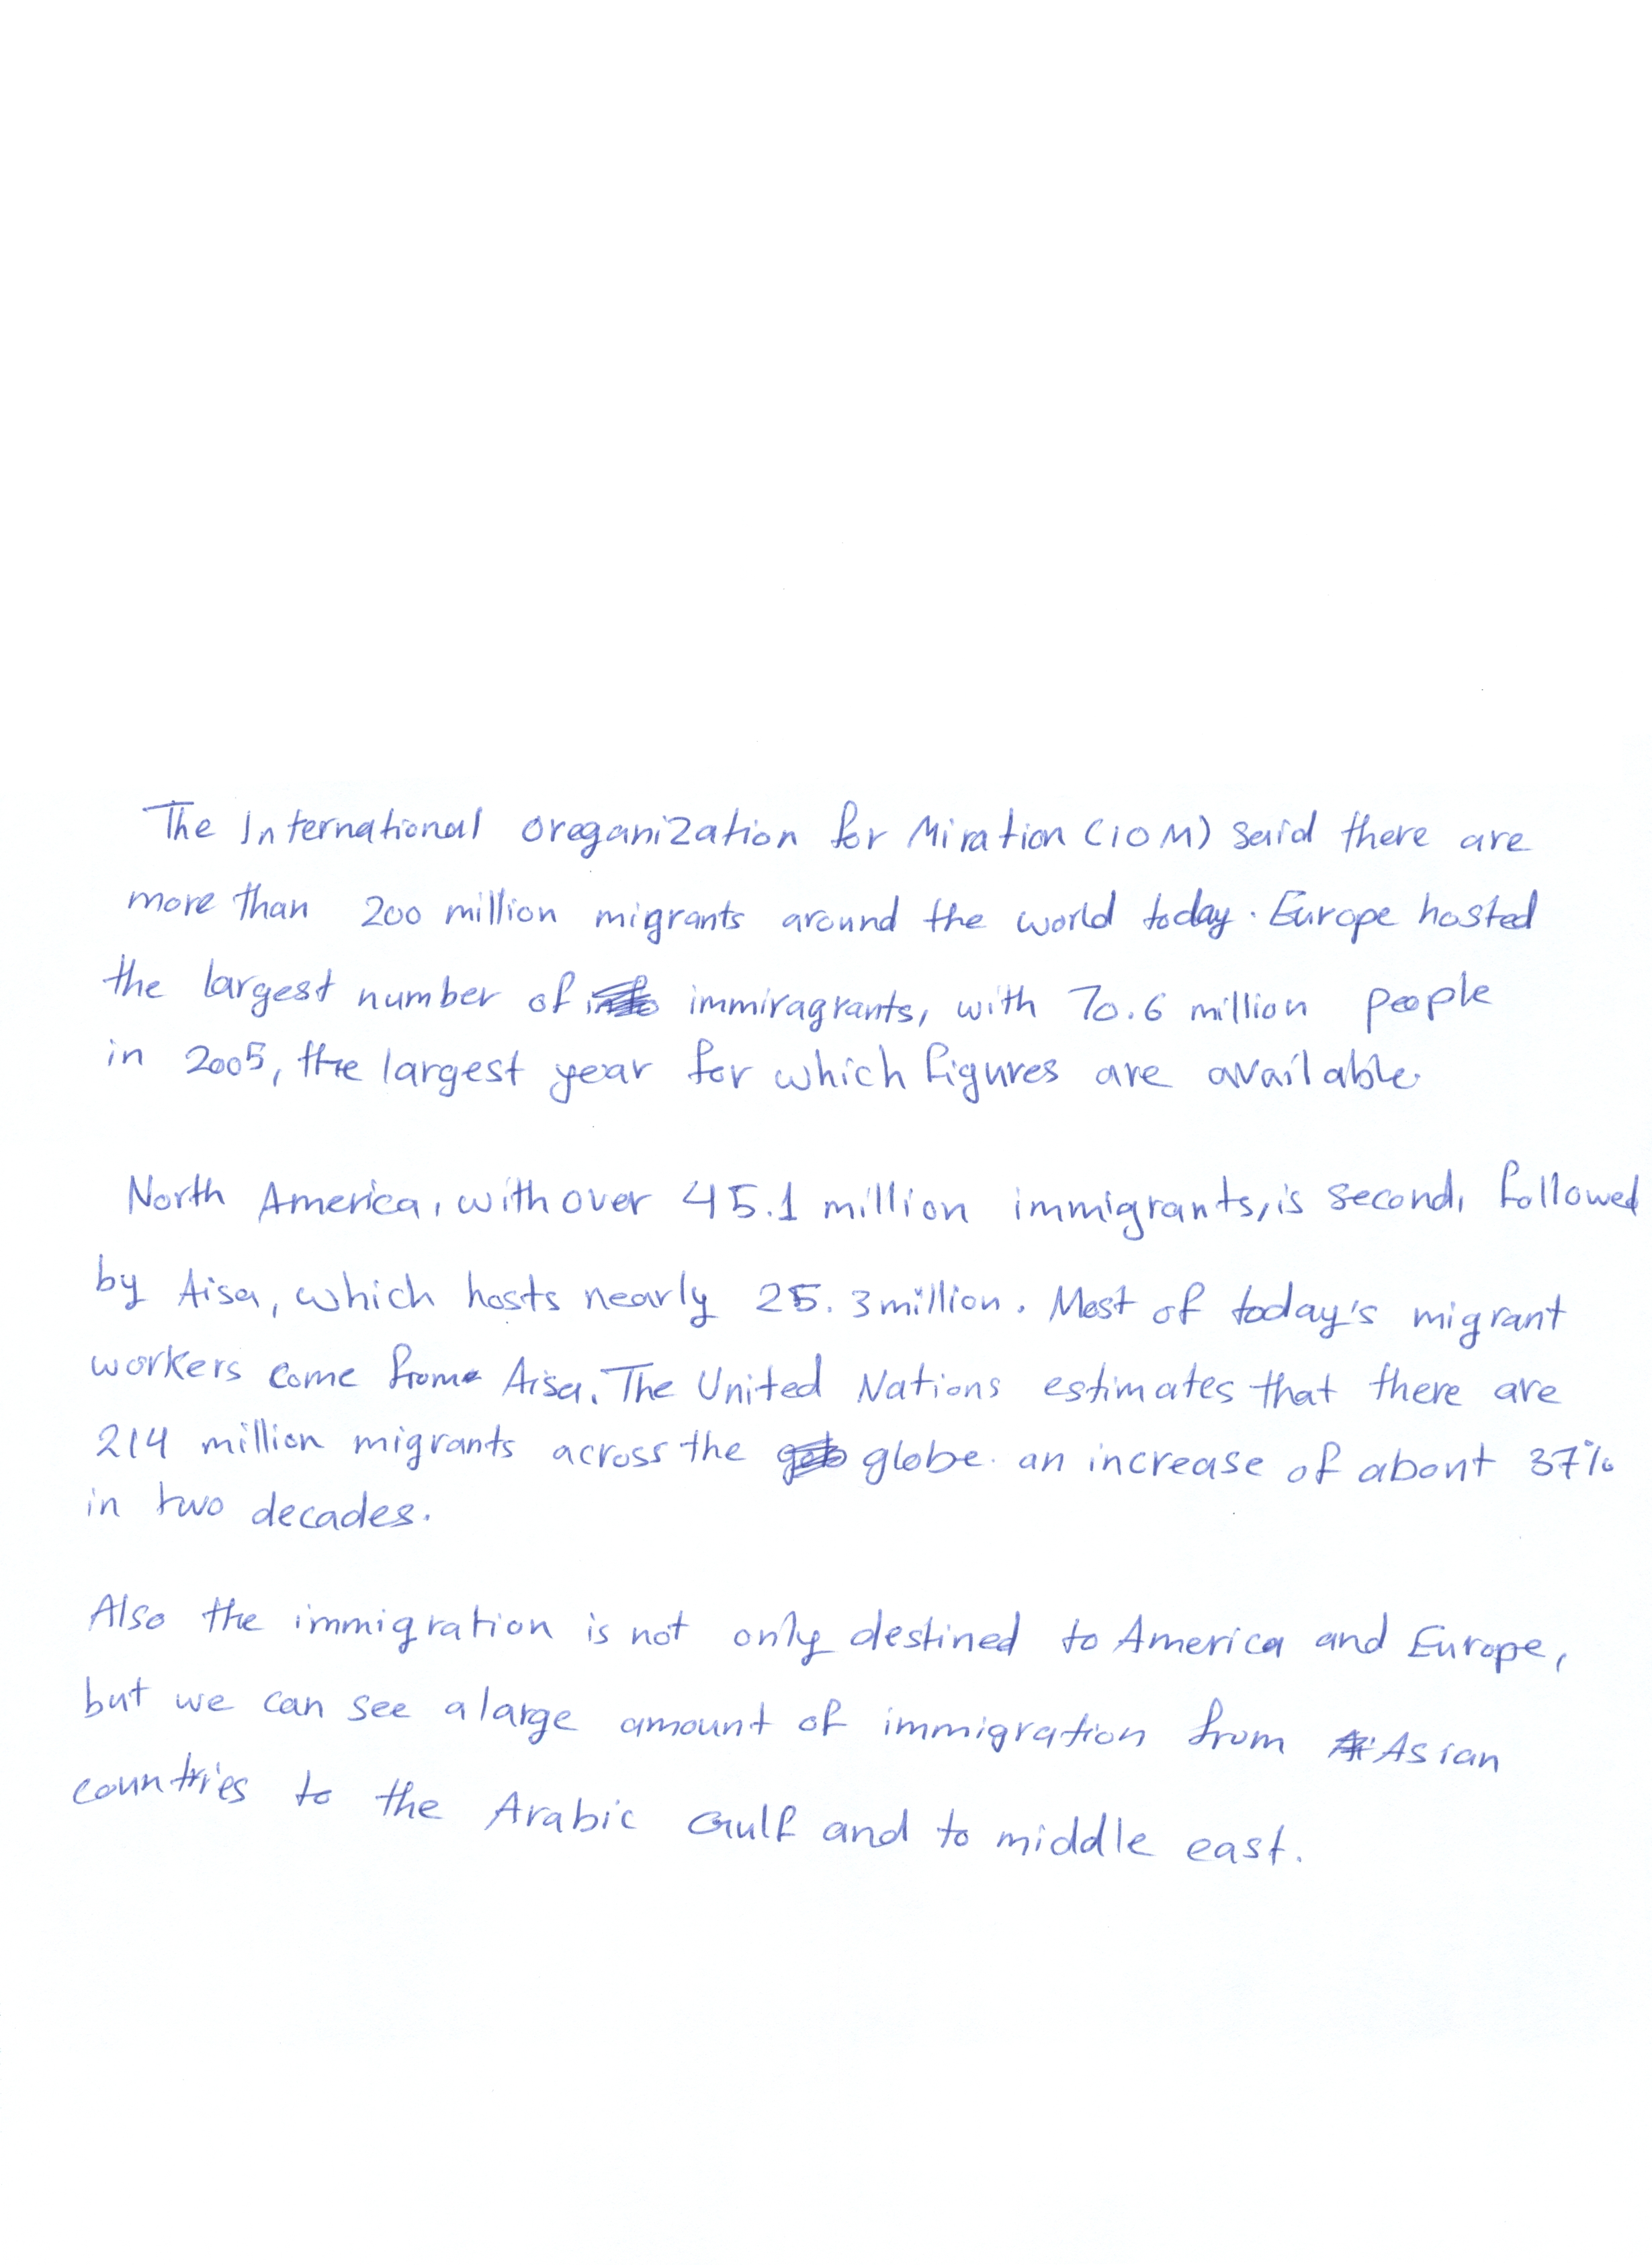 The International Oreganization for Miration (IOM) said there are
more than 200 million migrants around the world today. Europe hosted
the largest number of immiragrants, with 70.6 million people
in 2005, the largest year for which figures are available.
North America, with over 45.1 million immigrants, is second, followed
by Aisa, which hosts nearly 25.3 million. Most of today's migrant
workers come from Aisa. The United Nations estimates that there are
214 million migrants across the globe. an increase of abont 37%
in two decades.
Also the immigration is not only destined to America and Europe,
but we can see a large amount of immigration from Asian
countries to the Arabic Gulf and to middle east.